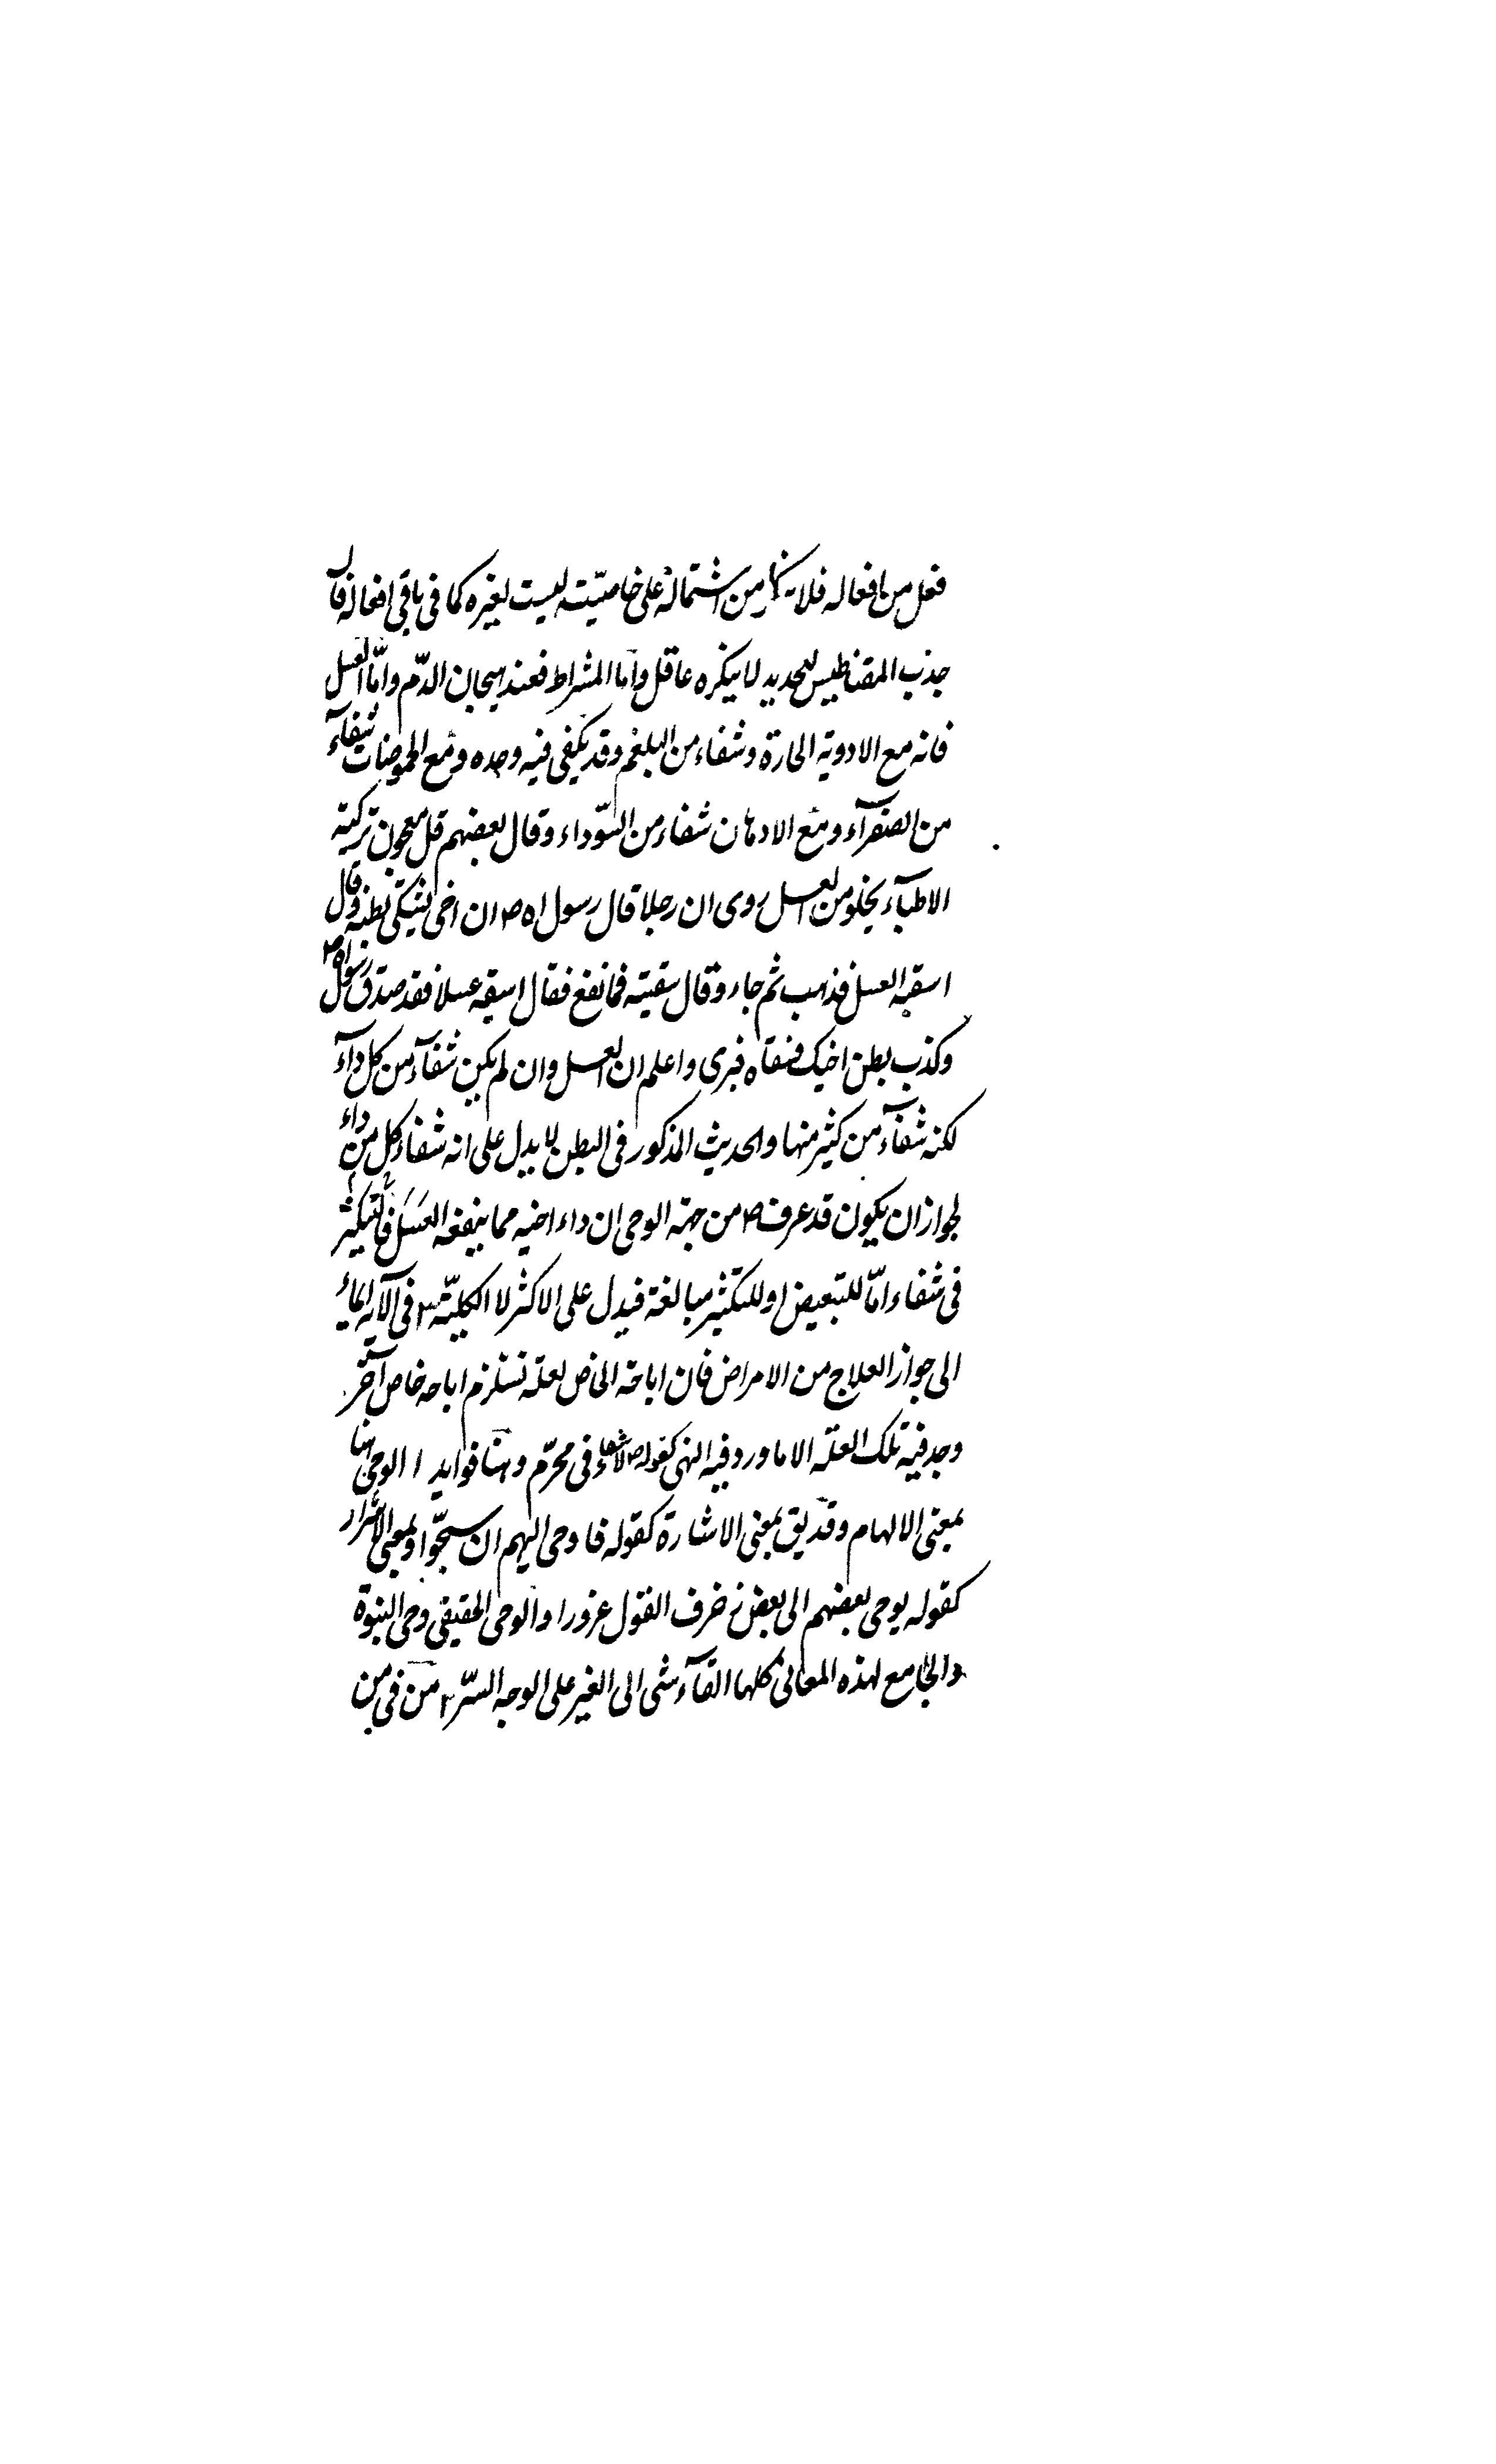 فعل من افعاله فلا من اشتماله على خاصيّته ليست لغيره كما فى باقى افعاله فان
جذب المقناطيس للحديد لا ينكره عاقل وامّا المشراط فعند هيجان الدّم وامّا العسل
فانه مع الادوية الحارة وشفاء من البلغم وقد يكفى فيه وحده ومع الحموضات شفاء
من الصفرآء ومع الادهان شفاء من السّوداء وقال بعضهم قل معجون تركيبه
الاطبآء يخلو من العسل روى ان رجلا قال رسول اه ص ان اخى يشتكى بطنه وقال
اسقيه العسل فذهب ثم جاء وقال سقيته فما نفع فقال اسقيه عسلا فقد صدق رسول اه ص
وكذب بطن اخيك فسقاه فبرى واعلم ان العسل وان لم يكن شفآء من كل دآء
لكنه شفآء من كثير منها والحديث المذكور فى البطن لا يدل على انه شفاء كل من داء
لجواز ان يكون قد عرف ص من جهة الوحى ان داء اخيه مما ينفعه العسل فالتنكير
فى شفاء امّا للتبعيض او للتكثير مبالغة فيدل على الاكثر لا الكليّة ٣ فى الآية ايماء
الى جواز العلاج من الامراض فان اباحة الخاص لعلة تستلزم اباحه خاص آخر
وجد فيه تلك العلّه الا ما ورد فيه النهى كقوله ص لا شفاء فى محرّم وهنا فوايد ا الوحى هنا
بمعنى الالهام وقد يق بمعنى الاشارة كقوله فاوحى اليهم ان سبحّوا وبمعنى الاسرار
كقوله يوحى بعضهم الى بعض زخرف القول غرورا والوحى الحقيقى وحى النبوة
والجامع لهذه المعانى كلها القآء شى الى الغير على الوجه السّر ٢ من فى من